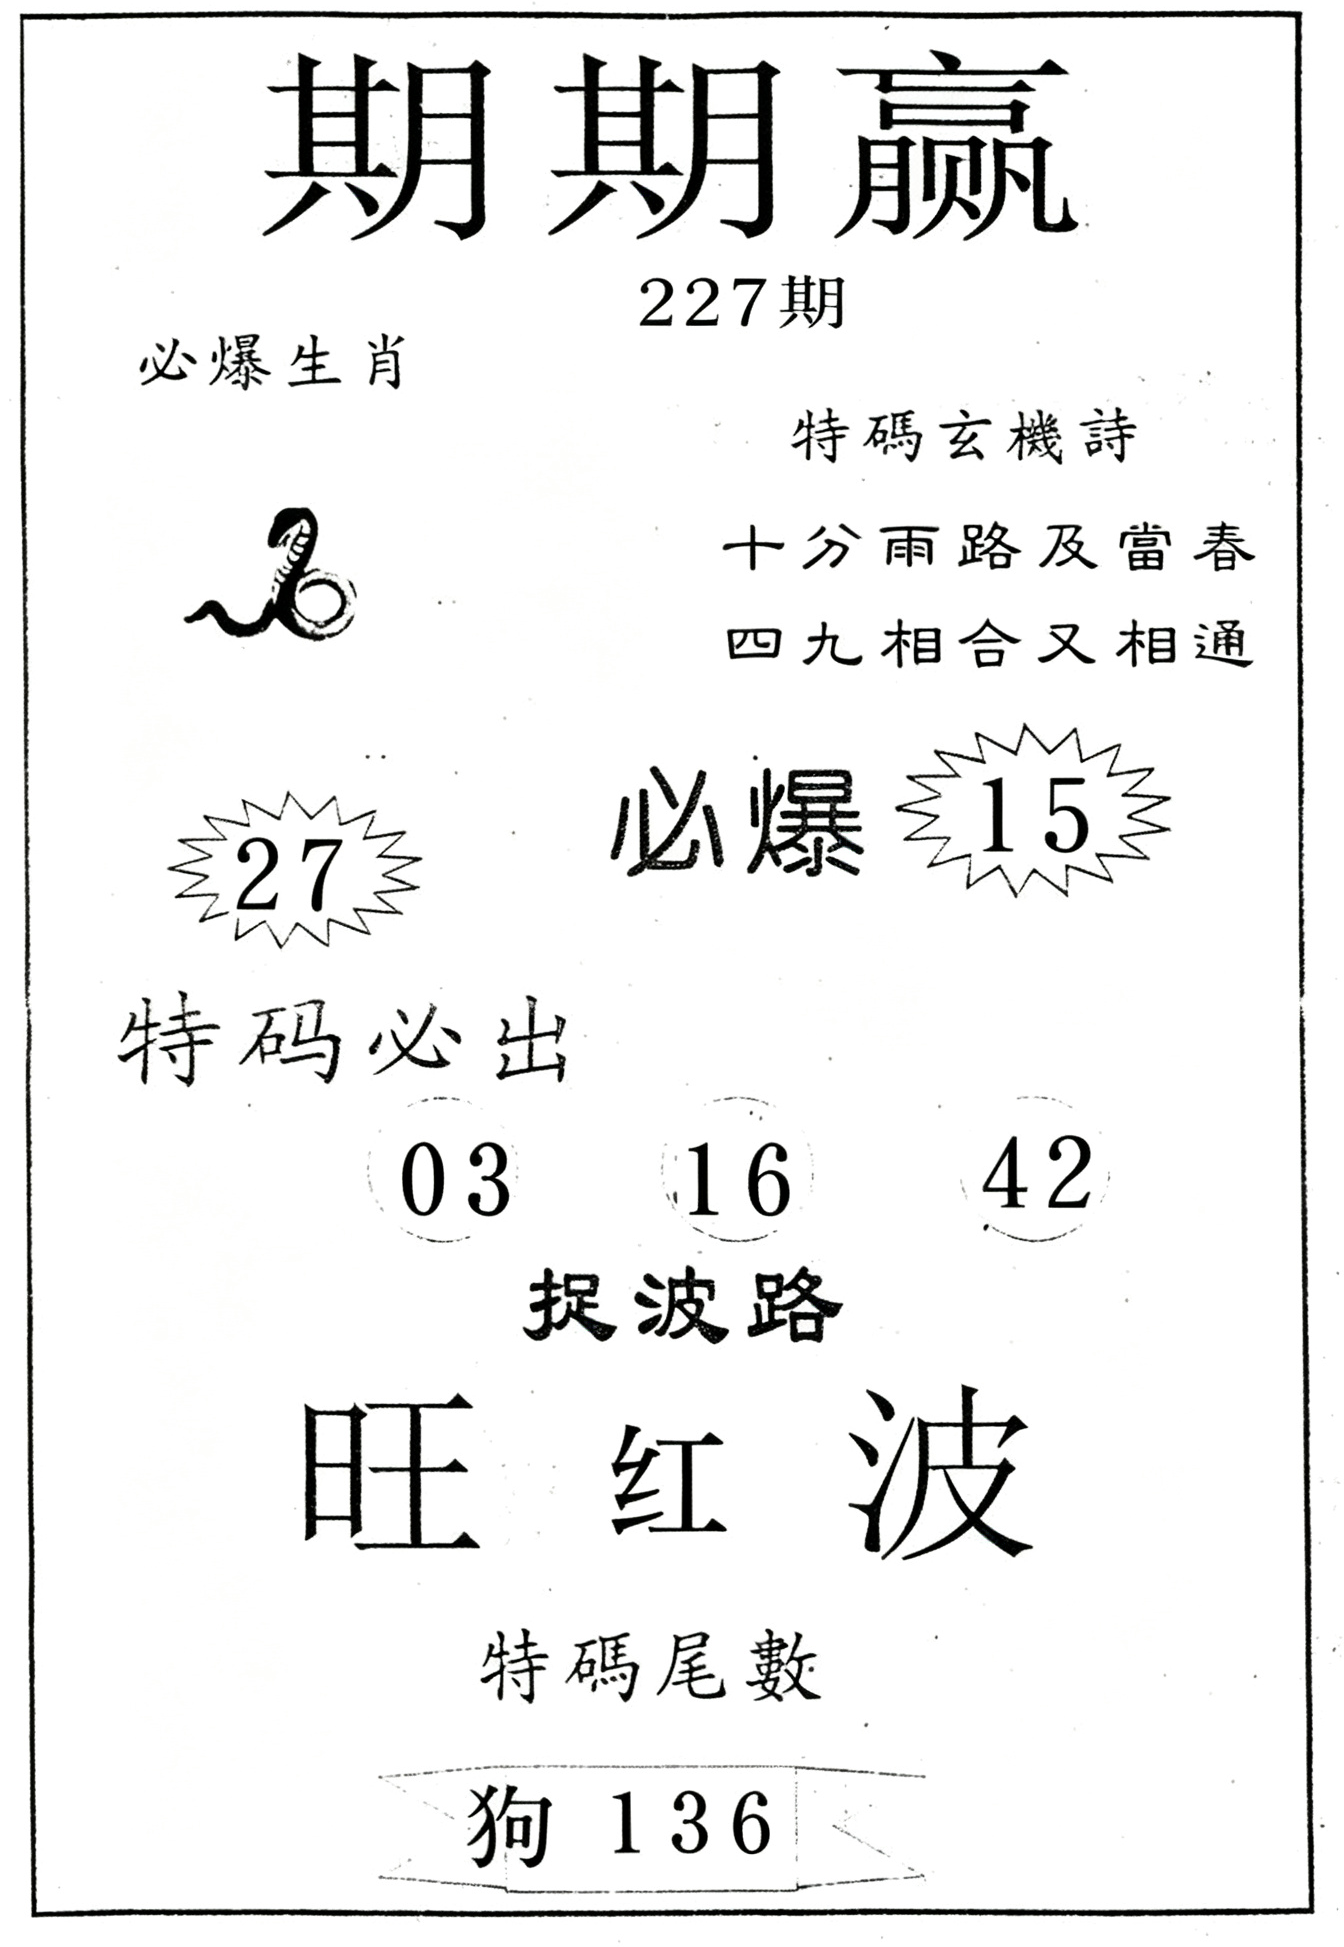 期期赢
227期
必爆生肖
特碼玄機詩
十分雨路及當春
四九相合又相通
必爆 15
27
特码必出
03 16 42
捉波路
旺红波
特碼尾數
狗 136